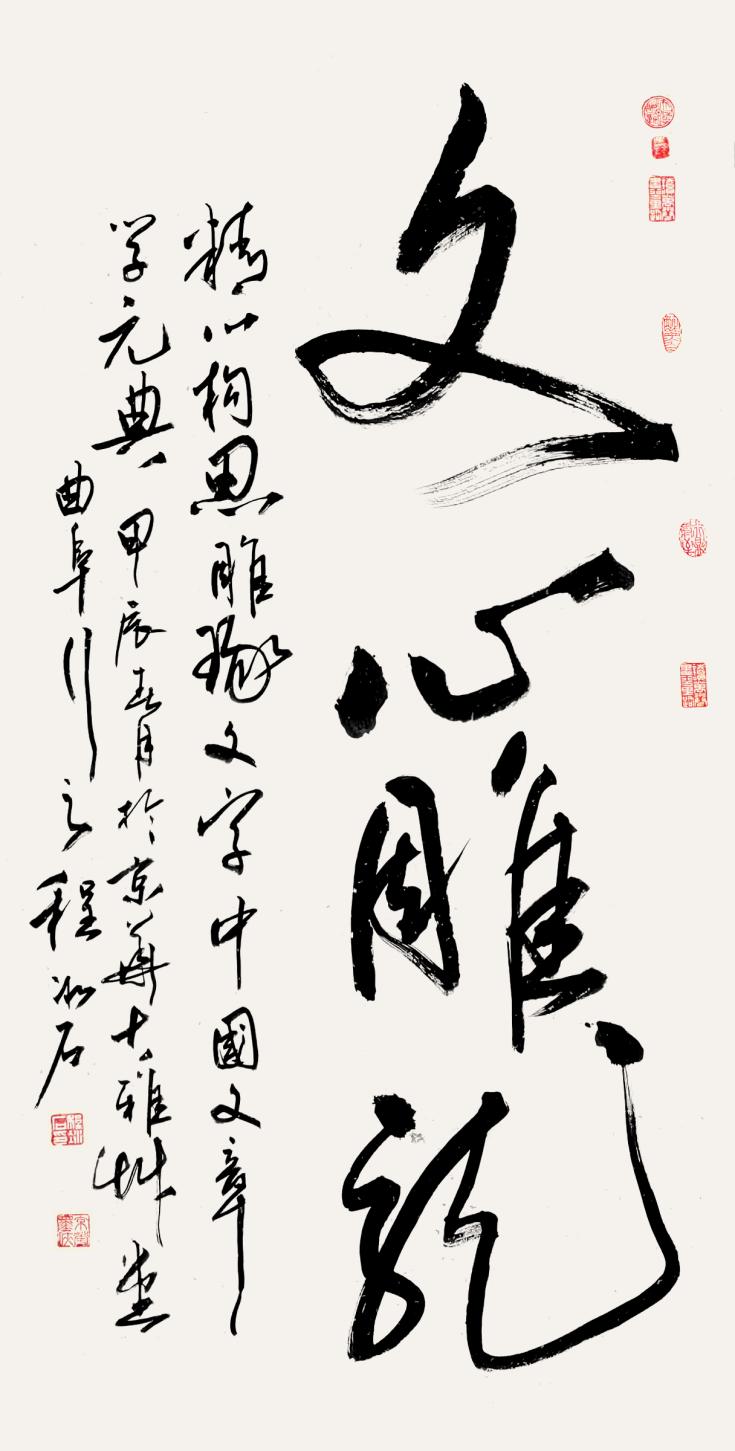 文心雕龍
精心构思雕琢文字中國文章
学元典 甲辰春月於京華大雅艸堂
曲阜行之程冰石